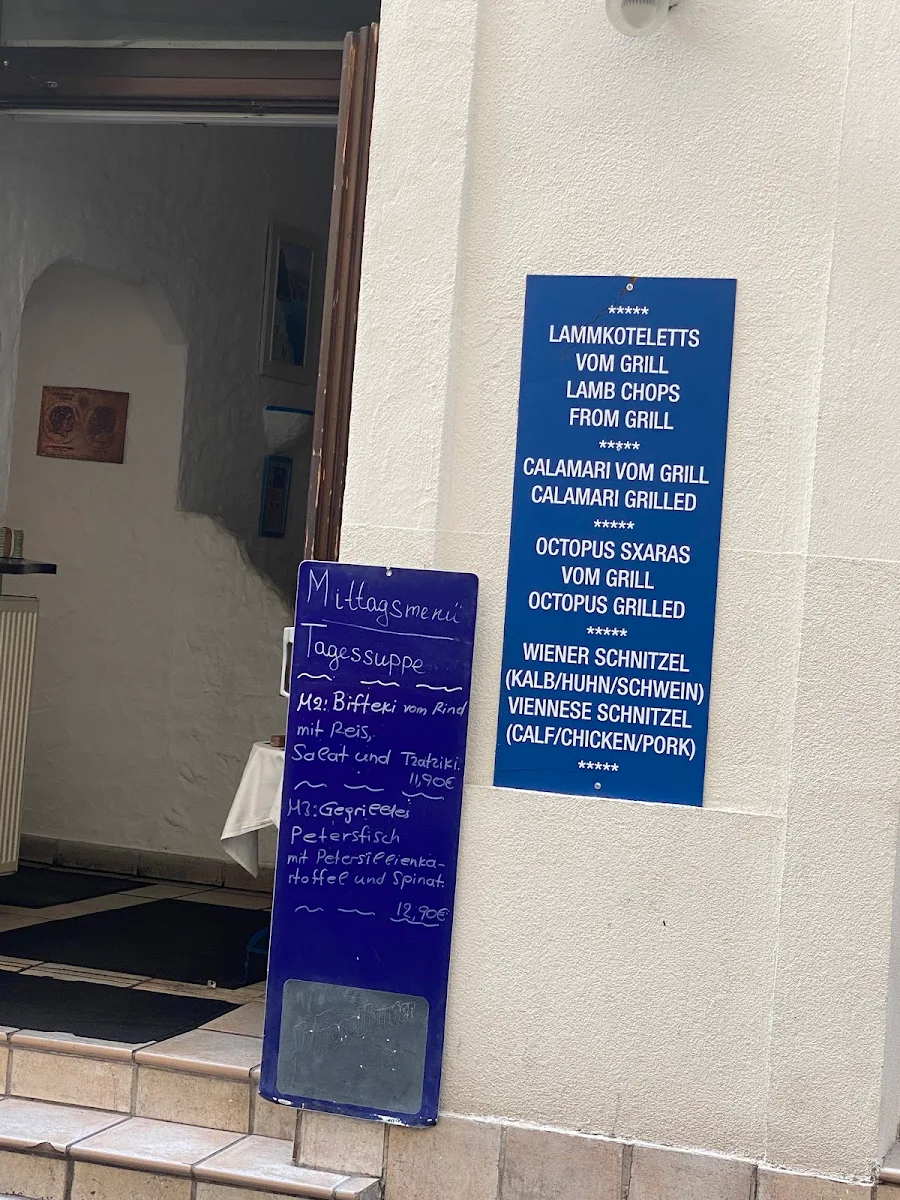 Mittagsmenü
Tagessuppe
M2: Bifteki vom Rind
mit Reis,
Salat und Tzatziki.
11,90€
M3: Gegrilltes
Petersfisch
mit Petersillienka-
rtoffel und Spinat.
12,90€
*****
LAMMKOTELETTS
VOM GRILL
LAMB CHOPS
FROM GRILL
*****
CALAMARI VOM GRILL
CALAMARI GRILLED
*****
OCTOPUS SXARAS
VOM GRILL
OCTOPUS GRILLED
*****
WIENER SCHNITZEL
(KALB/HUHN/SCHWEIN)
VIENNESE SCHNITZEL
(CALF/CHICKEN/PORK)
*****